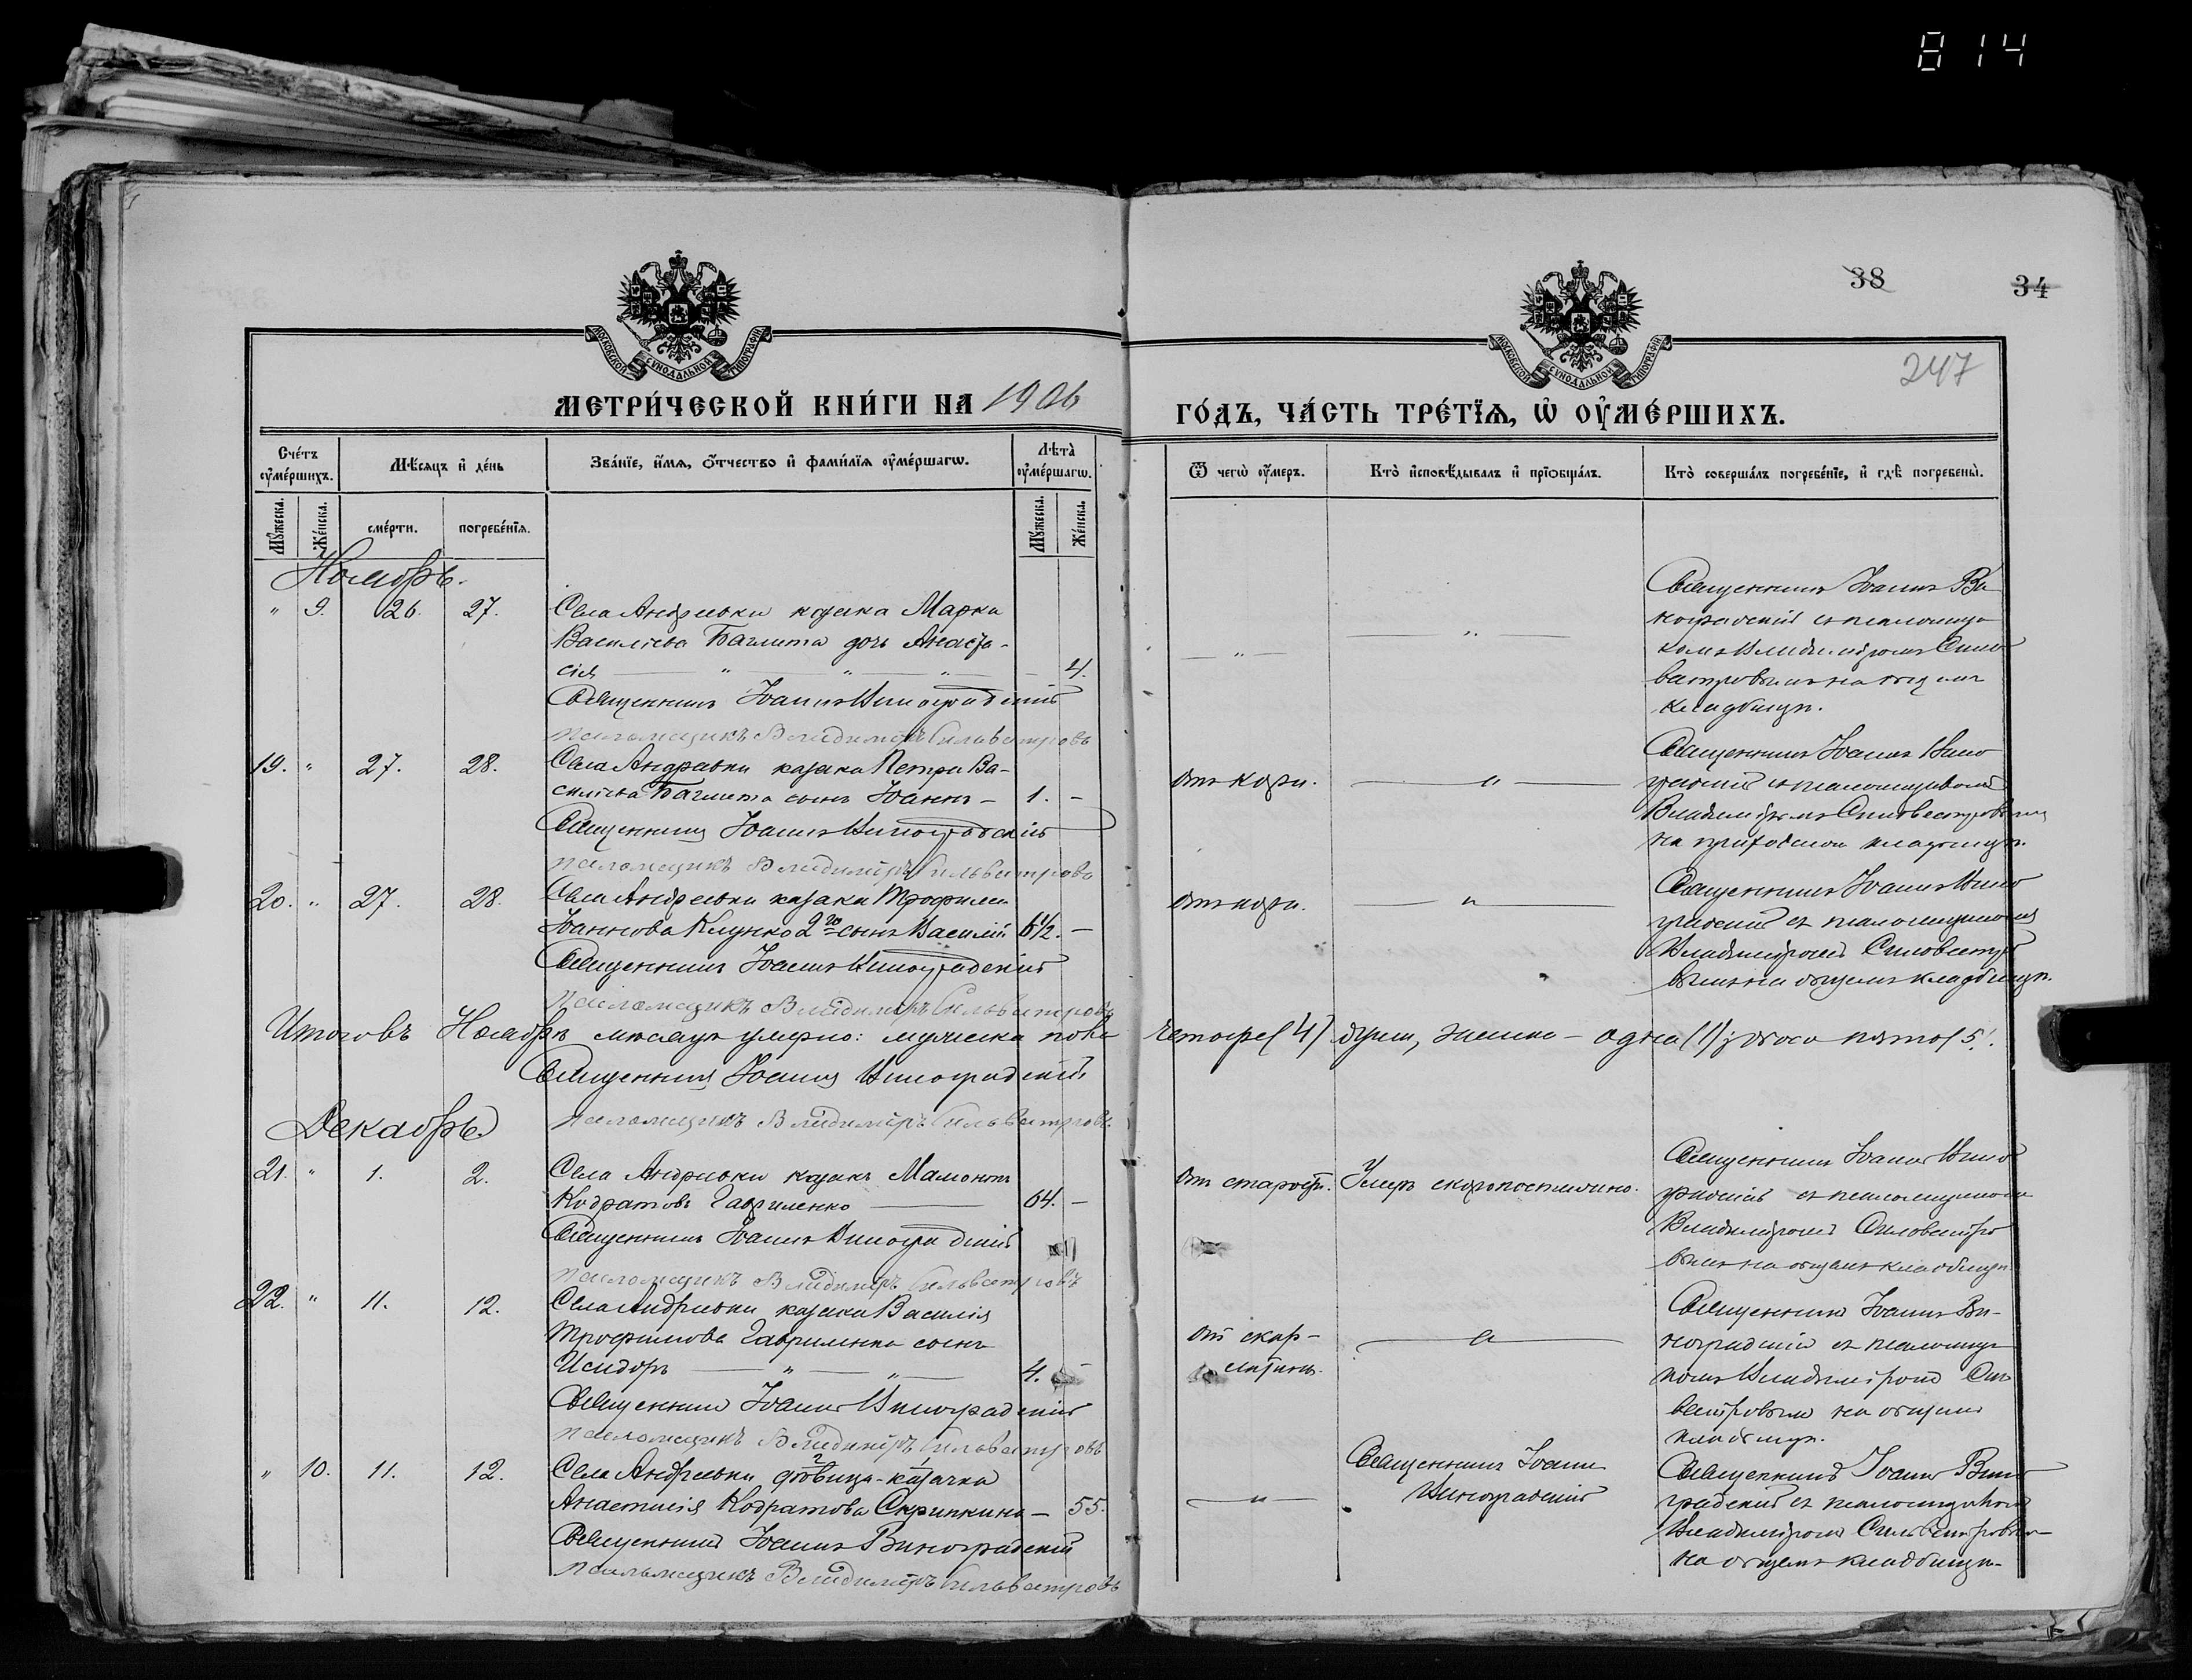 814
38
34
247
МОСКОВСКОЙ СѴНОДАЛЬНОЙ ТИПОГРАФІИ
МОСКОВСКОЙ СѴНОДАЛЬНОЙ ТИПОГРАФІИ
МЕТРИ́ЧЕСКОЙ КНИ́ГИ НА 1906
ГО́ДЪ, ЧА́СТЬ ТРЕ́ТЇѦ, Ѡ҆ ОУ҆МЕ́РШИХЪ.
Сче́тъ оу҆ме́ршихъ.
Мѣ́сяцъ и҆ де́нь
Зва́нїе, и҆́мѧ, ѻ҆́тчество и҆ фами́лїѧ оу҆ме́ршагѡ.
Лѣ́та оу҆ме́ршагѡ.
Ѿ чегѡ̀ оу҆́меръ.
Кто̀ и҆сповѣ́дывалъ и҆ прїѡбща́лъ.
Кто̀ соверша́лъ погребе́нїе, и҆ гдѣ̀ погребены̀.
Мꙋ́жеска.
Же́нска.
сме́рти.
погребе́нїѧ.
Мꙋ́жеска.
Же́нска.
Ноябрь.
" 9. 26. 27. Села Андреевки козака Марка
Васильева Баглита дочь Анаста-
сія — " — " — " — 4.
Священникъ Іоаннъ Виноградскій
Псаломщикъ Владиміръ Сильвестровъ
— " —
— " —
Священникъ Іоаннъ Ви-
ноградскій съ псаломщи-
комъ Владиміромъ Сильве-
стровымъ на общемъ
кладбищѣ.
19. " 27. 28. Села Андреевки казака Петра Ва-
сильева Баглита сынъ Іоаннъ — 1. -
Священникъ Іоаннъ Виноградскій
Псаломщикъ Владиміръ Сильвестровъ
отъ кори.
— " —
Священникъ Іоаннъ Вино-
градскій съ псаломщикомъ
Владиміромъ Сильвестровымъ
на приходскомъ кладбищѣ.
20. " 27. 28. Села Андреевки казака Трофима
Іоаннова Клунко 2го сынъ Василій 6 1/2. -
Священникъ Іоаннъ Виноградскій
Псаломщикъ Владиміръ Сильвестровъ
отъ кори.
— " —
Священникъ Іоаннъ Вино-
градскій съ псаломщикомъ
Владиміромъ Сильвестро-
вымъ на общемъ кладбищѣ.
Итого въ Ноябрѣ мѣсяцѣ умерло: мужеска пола четыре (4) души, женска - одна (1); обоего пять (5).
Священникъ Іоаннъ Виноградскій
Псаломщикъ Владиміръ Сильвестровъ.
Декабрь.
21. " 1. 2. Села Андреевки козакъ Мамонтъ
Кодратовъ Гавриленко — 64. -
Священникъ Іоаннъ Виноградскій
Псаломщикъ Владиміръ Сильвестровъ
отъ старости.
Умеръ скоропостижно.
Священникъ Іоаннъ Вино-
градскій съ псаломщикомъ
Владиміромъ Сильвестро-
вымъ на общемъ кладбищѣ
22. " 11. 12. Села Андреевки казака Василія
Трофимова Гавриленка сынъ
Исидоръ — " — " — 4. -
Священникъ Іоаннъ Виноградскій
Псаломщикъ Владиміръ Сильвестровъ
отъ скар-
латины.
— " —
Священникъ Іоаннъ Ви-
ноградскій съ псаломщи-
комъ Владиміромъ Силь-
вестровымъ на общемъ
кладбищѣ.
" 10. 11. 12. Села Андреевки вдовица-казачка
Анастасія Кодратова Скрипкина — 55.
Священникъ Іоаннъ Виноградскій
Псаломщикъ Владиміръ Сильвестровъ
— " —
Священникъ Іоаннъ
Виноградскій
Священникъ Іоаннъ Вино-
градскій съ псаломщикомъ
Владиміромъ Сильвестровымъ
на общемъ кладбищѣ.